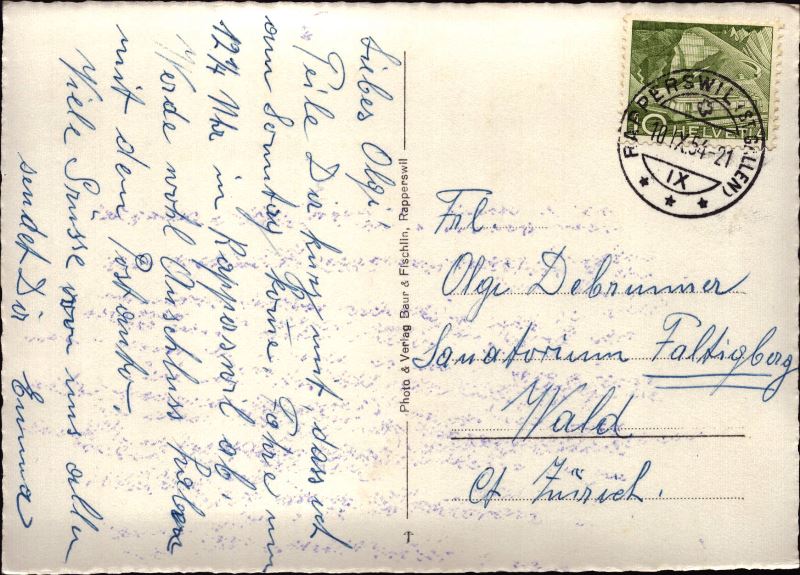 Libes Olgi
Teile Dir kurz mit, dass ich
am Sonntag kome. Fahre um
12¼ Uhr in Rapperswil ab.
Werde wohl Anschluss haben
mit dem Postauto.
Viele Grüsse von uns allen
sendet Dir Emma
Photo & Verlag Baur & Fischlin, Rapperswil
HELVETIA
RAPPERSWIL (ST. GALLEN)
10.IX.54-21
IX
Frl.
Olgi Debrunner
Sanatorium Faltigberg
Wald
Ct Zürich.